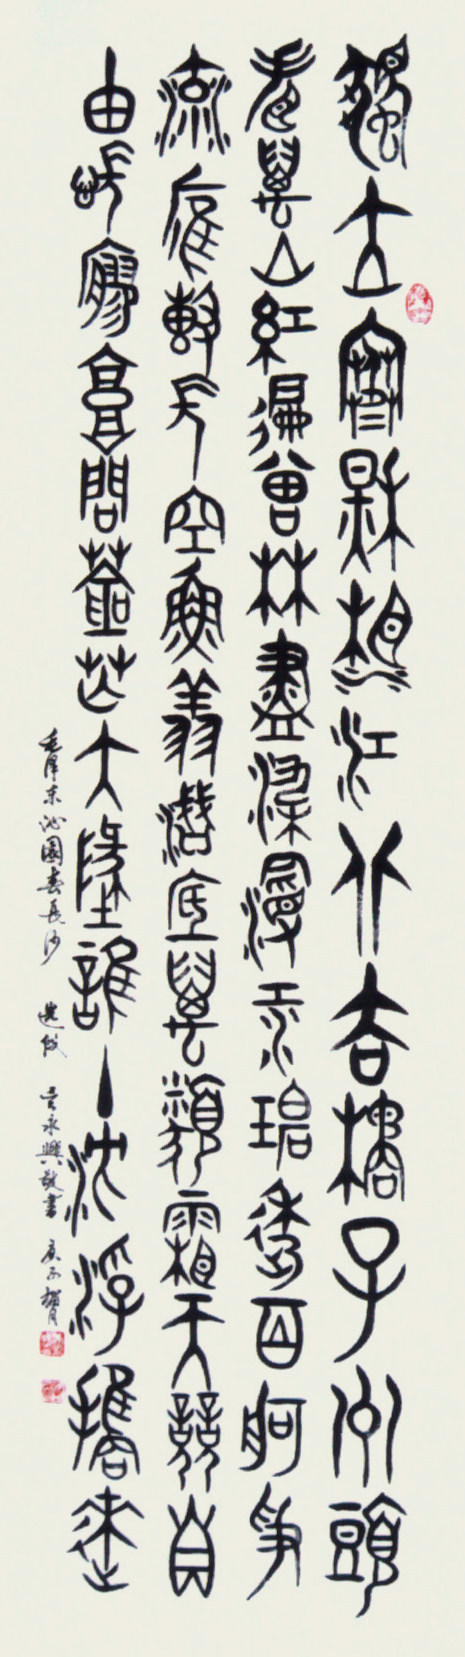 獨立寒秋湘江北去橘子洲頭
看萬山紅遍層林盡染漫江碧透百舸爭
流鷹擊長空魚翔淺底萬類霜天競自
由悵寥廓問蒼茫大地誰主沉浮攜來
毛澤東沁園春長沙 選段 吴永興敬書 庚子臘月